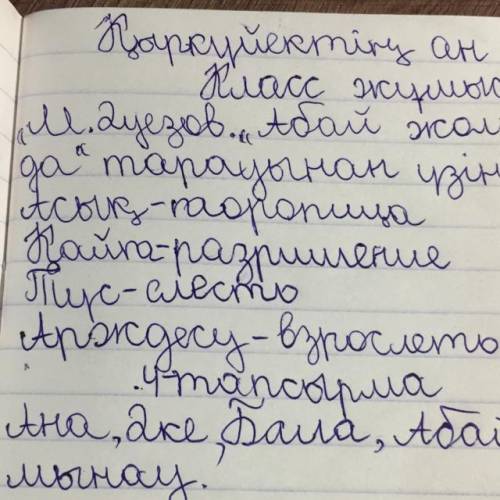 Қыркүйектің ан
Класс жұмыс
„М. Әуезов. „Абай жол
да" тарауынан үзін
Асық-таоропица
Қайта-разришение
Түс-слесто
Арждесу-взрослето
.4-тапсырма
Ана, Әке, Бала, Абай
мынау.